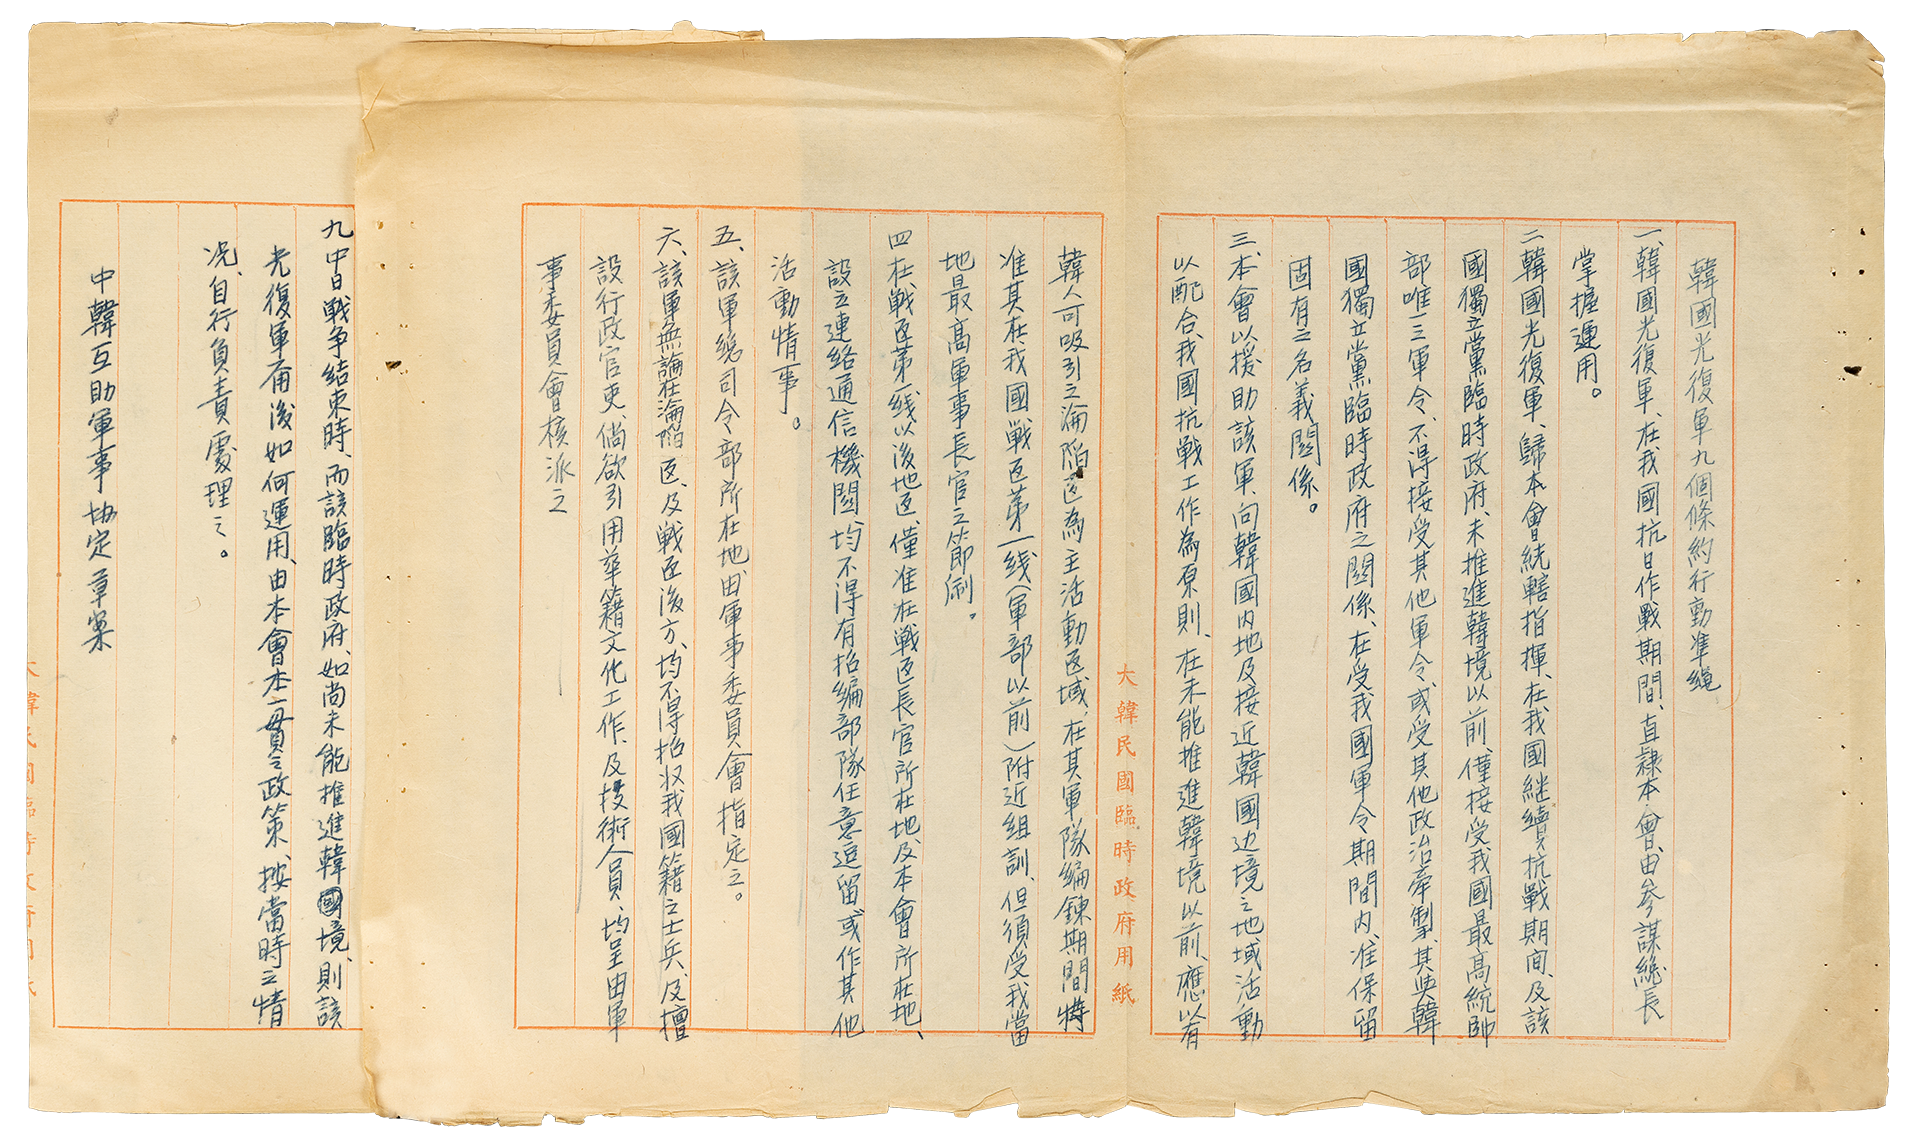 韓國光復軍九個條約行動準繩
一、韓國光復軍、在我國抗日作戰期間、直隸本會、由參謀總長
掌握運用。
二、韓國光復軍、歸本會統轄指揮、在我國継續抗戰期间、及該
國獨立黨臨時政府、未推進韓境以前、僅接受我國最高統帥
部唯一三軍令、不得接受其他軍令、或受其他政治牽掣、其與韓
國獨立黨臨時政府之關係、在受我國軍令期間内、准保留
固有之名義關係。
三、本會以援助該軍、向韓國内地及接近韓國边境之地域活動
以配合、我國抗戰工作為原則、在未能推進韓境以前、應以有
韓人可吸引之淪陷區為主活動区域、在其軍隊編鍊期間特
准其在我國戰区苐一线(軍部以前)附近組訓、但須受我當
地最高軍事長官之節制。
四、在戰区苐一线以後地区、僅准在戰区長官所在地及本會所在地、
設立連絡通信機關、均不得有招編部隊任意逗留或作其他
活動情事。
五、該軍總司令部所在地、由軍事委員會指定之。
六、該軍無論在淪陷区、及戰区後方、均不得招收我國籍之士兵、及擅
設行政官吏、倘欲引用華籍文化工作、及技術人員、均呈由軍
事委員會核派之
大韓民國臨時政府用紙
九中日戰争結束時、而該臨時政府、如尚未能推進韓國境、則該
光復軍爾後如何運用、由本會本一貫之政策、按當時之情
况、自行負責處理之。
中韓互助軍事協定草案
大韓民國臨時政府用紙